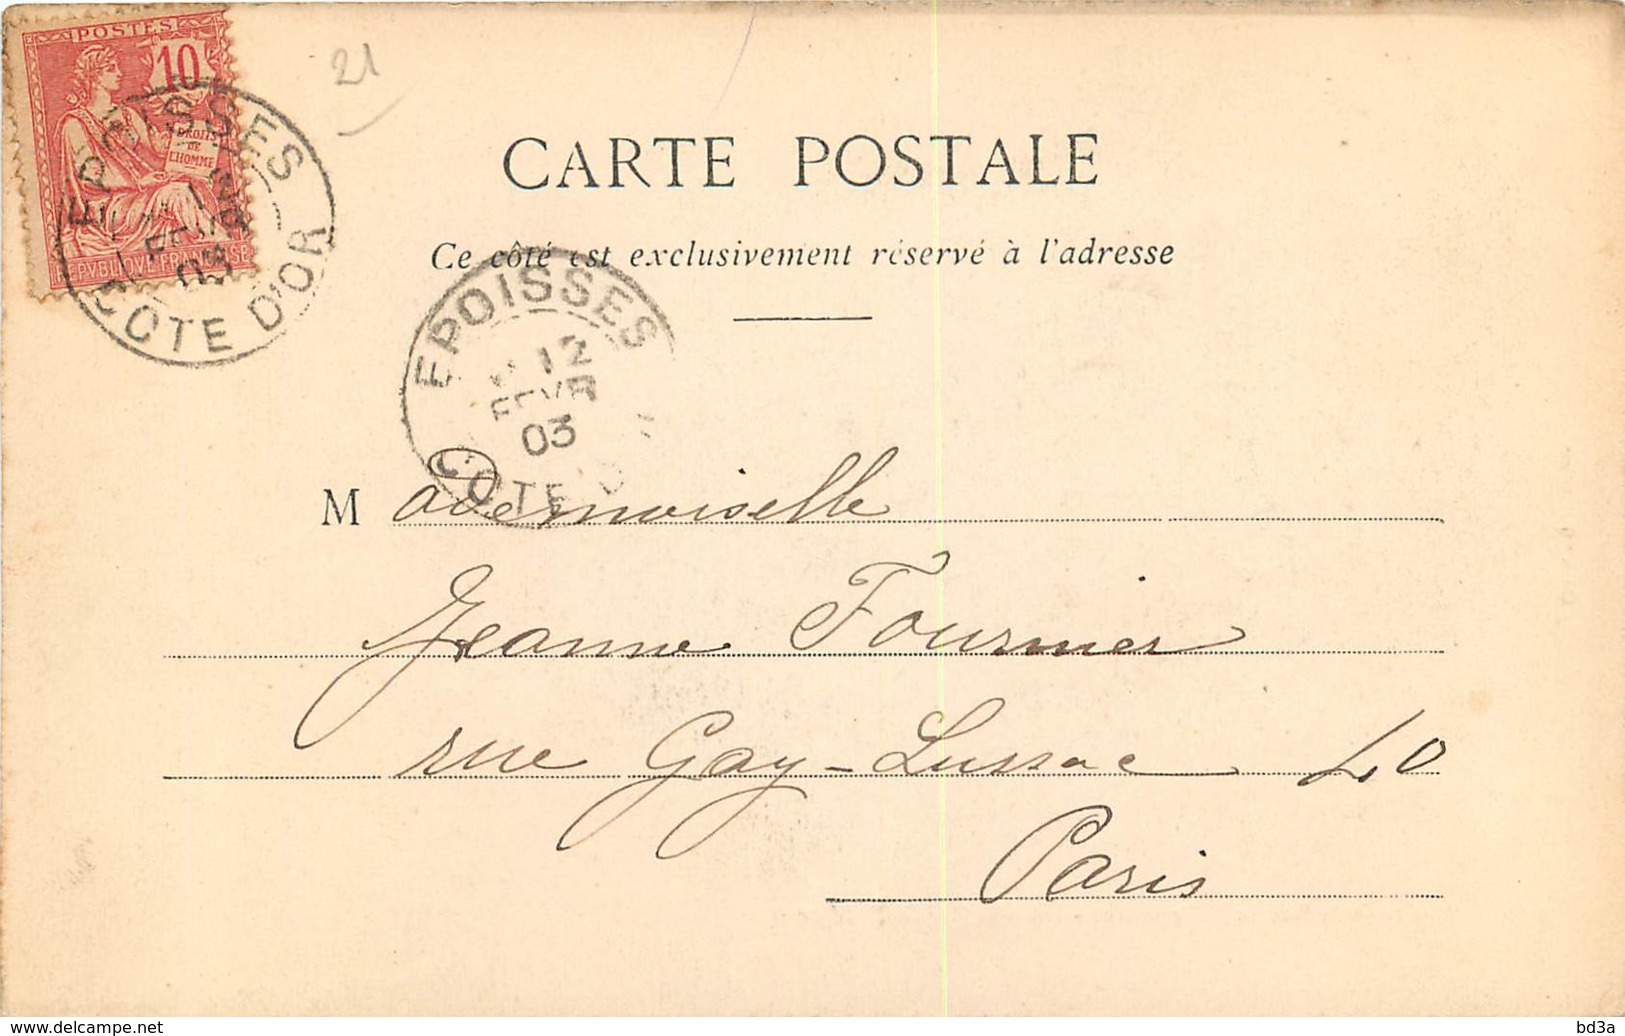 POSTES
10
DROITS
DE
L'HOMME
REPVBLIQVE FRANÇAISE
EPOISSES
FEVR
03
COTE D'OR
21
CARTE POSTALE
Ce côté est exclusivement réservé à l'adresse
EPOISSES
12
FEVR
03
COTE D
Mademoiselle
Jeanne Fournier
rue Gay-Lussac 40
Paris
delcampe.net
bd3a